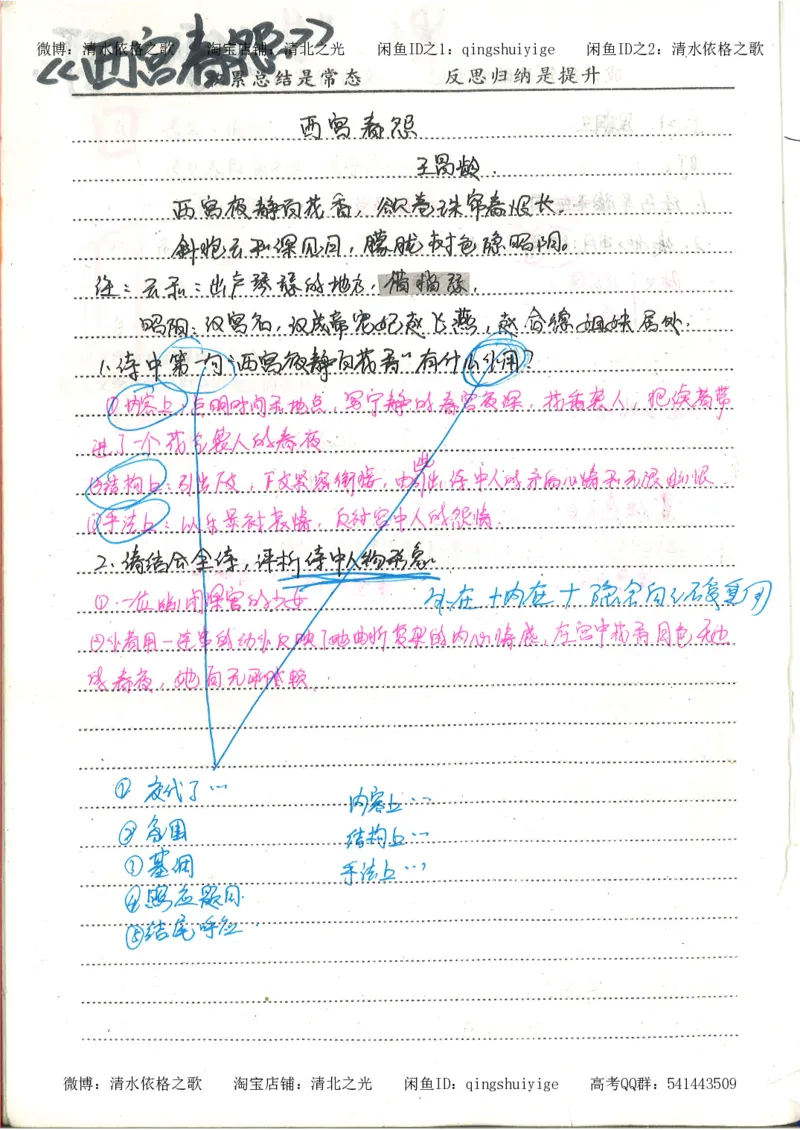 微博：清水依格之歌 淘宝店铺：清北之光 闲鱼ID之1：qingshuiyige 闲鱼ID之2：清水依格之歌
《西宫春怨》
累总结是常态 反思归纳是提升
西宫春怨
王昌龄.
西宫夜静百花香，欲卷珠帘春恨长。
斜抱云和深见月，朦胧树色隐昭阳。
注：云和：出产琴瑟的地方，借指瑟.
昭阳：汉宫名，汉成帝宠妃赵飞燕，赵合德姐妹居处.
1.诗中第一句"西宫夜静百花香"有什么作用？
①内容上：点明时间和地点，写宁静的春宫夜深，花香袭人，把读者带
进了一个花香袭人的春夜.
②结构上：引出下文，下文紧密衔接，由此引出诗中人的矛盾心情和无限幽恨
③手法上：以乐景衬哀情，反衬宫中人的怨情.
2.请结合全诗，评析诗中人物形象.
①一位幽闭深宫的少女
外在+内在+隐含
②作者用一连串的动作反映了她曲折复杂的内心情感，在宫中花香月色无边
的春夜，她
①交代了…
内容上…
②氛围
结构上…
③基调
手法上…
④照应题目.
⑤结尾呼应.
微博：清水依格之歌 淘宝店铺：清北之光 闲鱼ID：qingshuiyige 高考QQ群：541443509